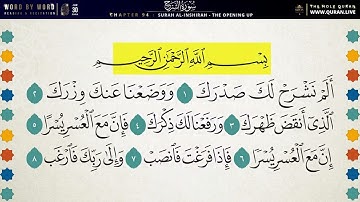 WORD BY WORD
READING & RECITATION
JUZ
30
سورة الشرح
CHAPTER 94 : SURAH AL-INSHIRAH - THE OPENING UP
THE HOLY QURAN
WWW.QURAN.LIVE
بِسْمِ اللَّهِ الرَّحْمَٰنِ الرَّحِيمِ
أَلَمْ نَشْرَحْ لَكَ صَدْرَكَ ١ وَوَضَعْنَا عَنكَ وِزْرَكَ ٢
الَّذِي أَنقَضَ ظَهْرَكَ ٣ وَرَفَعْنَا لَكَ ذِكْرَكَ ٤ فَإِنَّ مَعَ الْعُسْرِ يُسْرًا ٥
إِنَّ مَعَ الْعُسْرِ يُسْرًا ٦ فَإِذَا فَرَغْتَ فَانصَبْ ٧ وَإِلَىٰ رَبِّكَ فَارْغَب ٨